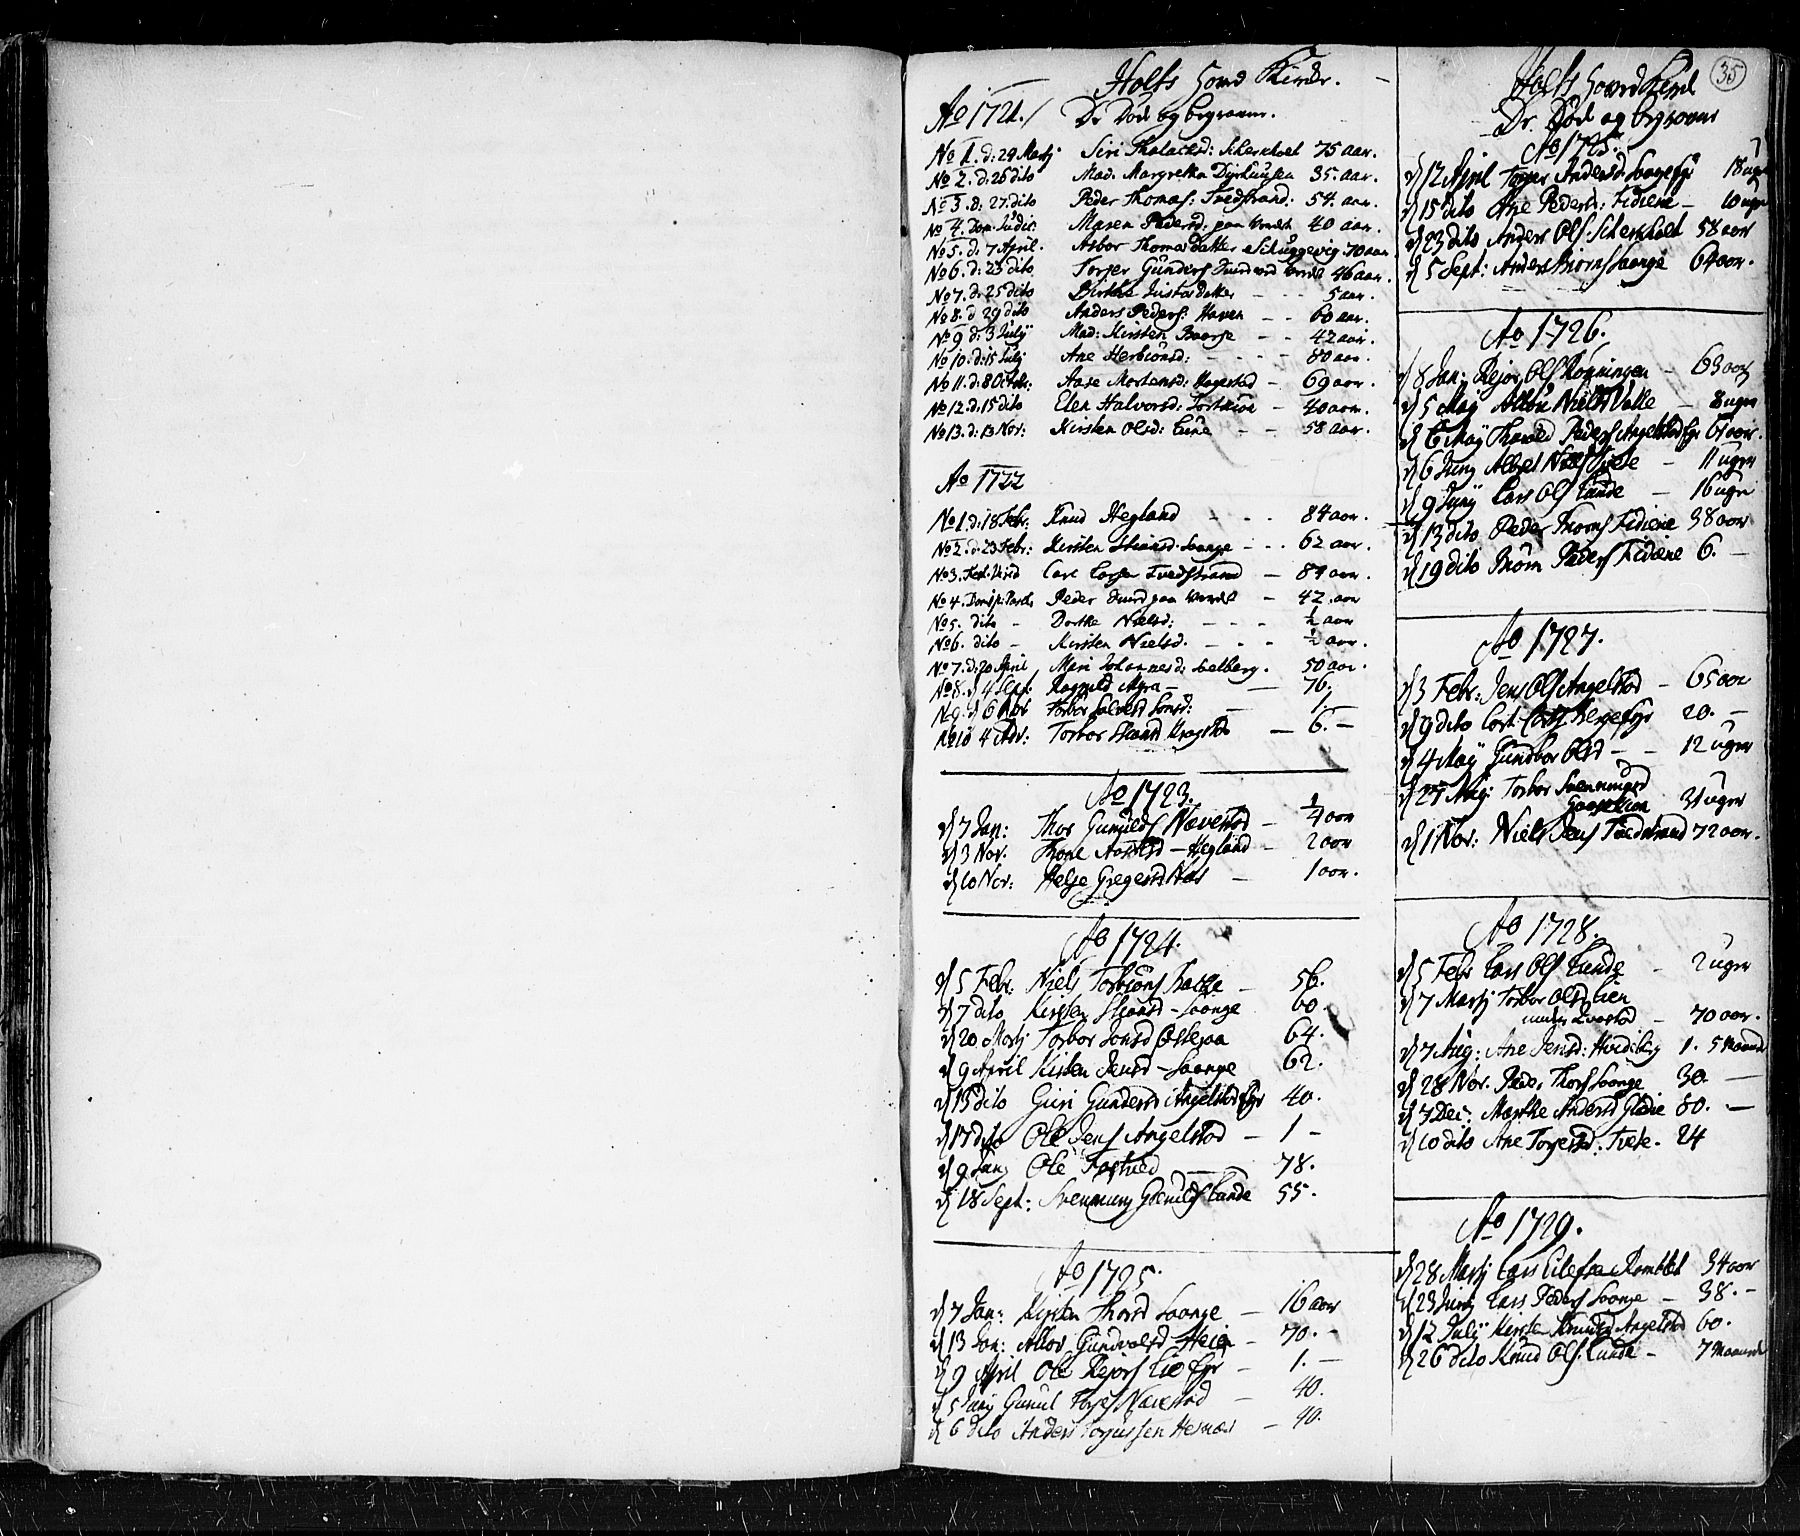 Holts Hoved Kirche.
Ao 1721. De Døde og begravne.
No 1. d: 24 Martj Siri Thalachsd: Schercholt 75 aar.
No 2. d: 26 dito Mad: Margretha Dyrhusen 35. aar.
No 3. d: 27. dito Peder Thomas: Tvedstrand: 54. aar.
No 4. Dom: Judic: Maren Pedersd: paa 40 aar.
No 5. d: 7 April. Asbor Thomas Datter Schuggevig. 70 aar
No 6. d: 23 dito Torjer Gunders 46 aar.
No 7. d: 25 dito Birthe Datter - - 5 aar.
No 8. d 29 dito Anders Peders: Haven - - 60 aar.
No 9 d: 3 Julij Mad: Kirsten Boorse - - 42 aar.
No 10. d: 15 Julj Ane Herbiørnsd: - - - - 80 aar.
No 11. d: 8 Octobr: Aase Mortensd: Hagestad - 69 aar.
No 12. d. 15 dito Elen Halvorsd: - 40 aar.
No 13. d: 13 Nov: Kirsten Olsd: Lune - - 58 aar.
Ao 1722
No 1. d: 18 Febr: Knud Hegland - - - 84 aar.
No 2. d. 23 Febr: Kirsten Stiansd. Laange - - - 62 aar.
No 3. Carl Larsen Tvedstrand - 84 aar.
No 4. Peder paa - 42. aar
No 5. dito - Dorthe Nielsd: - - - ½ aar
No 6. dito - Kirsten Nielsd. - - - ½ aar.
No 7. d: 20 April Mari Johannesd: Solberg. 50 aar.
No 8. d 4 Sept: Ragnild Myra - - 76.
No 9. d 6 Nov Torbor Jonsd: - 1.
No 10 4 Adv: Torbor - 6. -
Ao 1723.
d 7 Jan: Thor Gunulds Nævestad - ¼ aar
d 3 Nov. Thone Aasestd - Hegland - 2 aar
d 10 Nov: Helje Gregersd Næs - 1 aar.
Ao 1724.
d 5 Febr: Niels Torbiøns - 56.
d 7 dito Kirsten Stiansd - Laange 60.
d 20 Martj Torbor Jonsd 64.
d 9 April Kisten Jensd - Laange 62.
d 13 dito Guri Gundersd Angelstad Eyr 40.
d 17 dito Ole Jens Angelstad - 1 -
d 9 Junj Ole Fostved - 78.
d 18 Sept: Svenning Gunulds Lunde 55.
Ao 1725.
d 7 Jan: Kirsten Thorsd Laange - 16 aar
d 13 Jan: Gundvalsd Heien - 70. -
d 9 April Ole Rejers Lie Eyr - 1. -
d 5 Junj Gunul Torjes Nævestad - 40.
d 6 dito Anders Torjussen Hesnæs - 40.
35
Holts Hoved Kirch
De Døde og begravne
Ao 1725.
d 12 April Torjer Andersd: Laange Eyr 18 uger
d 15 dito Ane Pedersd: Fidiene - 10 uger
d 23 dito Anders Ols: Scherkholt 58 aar
d 5 Sept: Anders Thoms Laange 64 aar.
Ao 1726.
d 8 Jan: Rejer Ols Røgningen - 63 aar
d 5 Maij Niels Valle - 8 uger
d 6 Maij Peders Angelstad Eyr 61 aar.
d 6 Junj Niels Tvete - 11 uger
d 9 Junij Lars Ols Lunde - 16 uger
d 13 dito Peder Thoms Fidiene 38 aar
d 19 dito Thom Peders Fidiene 6. -
Ao 1727.
d 3 Febr: Jens Ols Angelstad - 65 aar
d 9 dito 20. -
d 4 Maij Gundbor Olsd - - 12 uger
d 27 Aug: Torbor Svenningsd
31 uger
d 1 Nov: Niels Jens Tvedstrand 72 aar.
Ao 1728.
d 5 Febr Lars Ols Lunde - 2 uger
d 7 Martj Torbor Olsd Lien
under - 70 aar.
d 7 Aug: Ane Jensd: 1. 5 Maande
d 28 Nov. Peder Thors Laange 30 -
d 7 Dec: Marthe Andersd Glidie 80. -
d 10 dito Ane Torjersd: Tvete. 24
Ao 1729.
d 28 Martj Lars 34 aar
d 23 Junij Lars Peders Laange - 38. -
d 12 Julij Kirsten Knudsd Angelstad 60.
d 26 dito Knud Ols. Lunde - 7 Maande